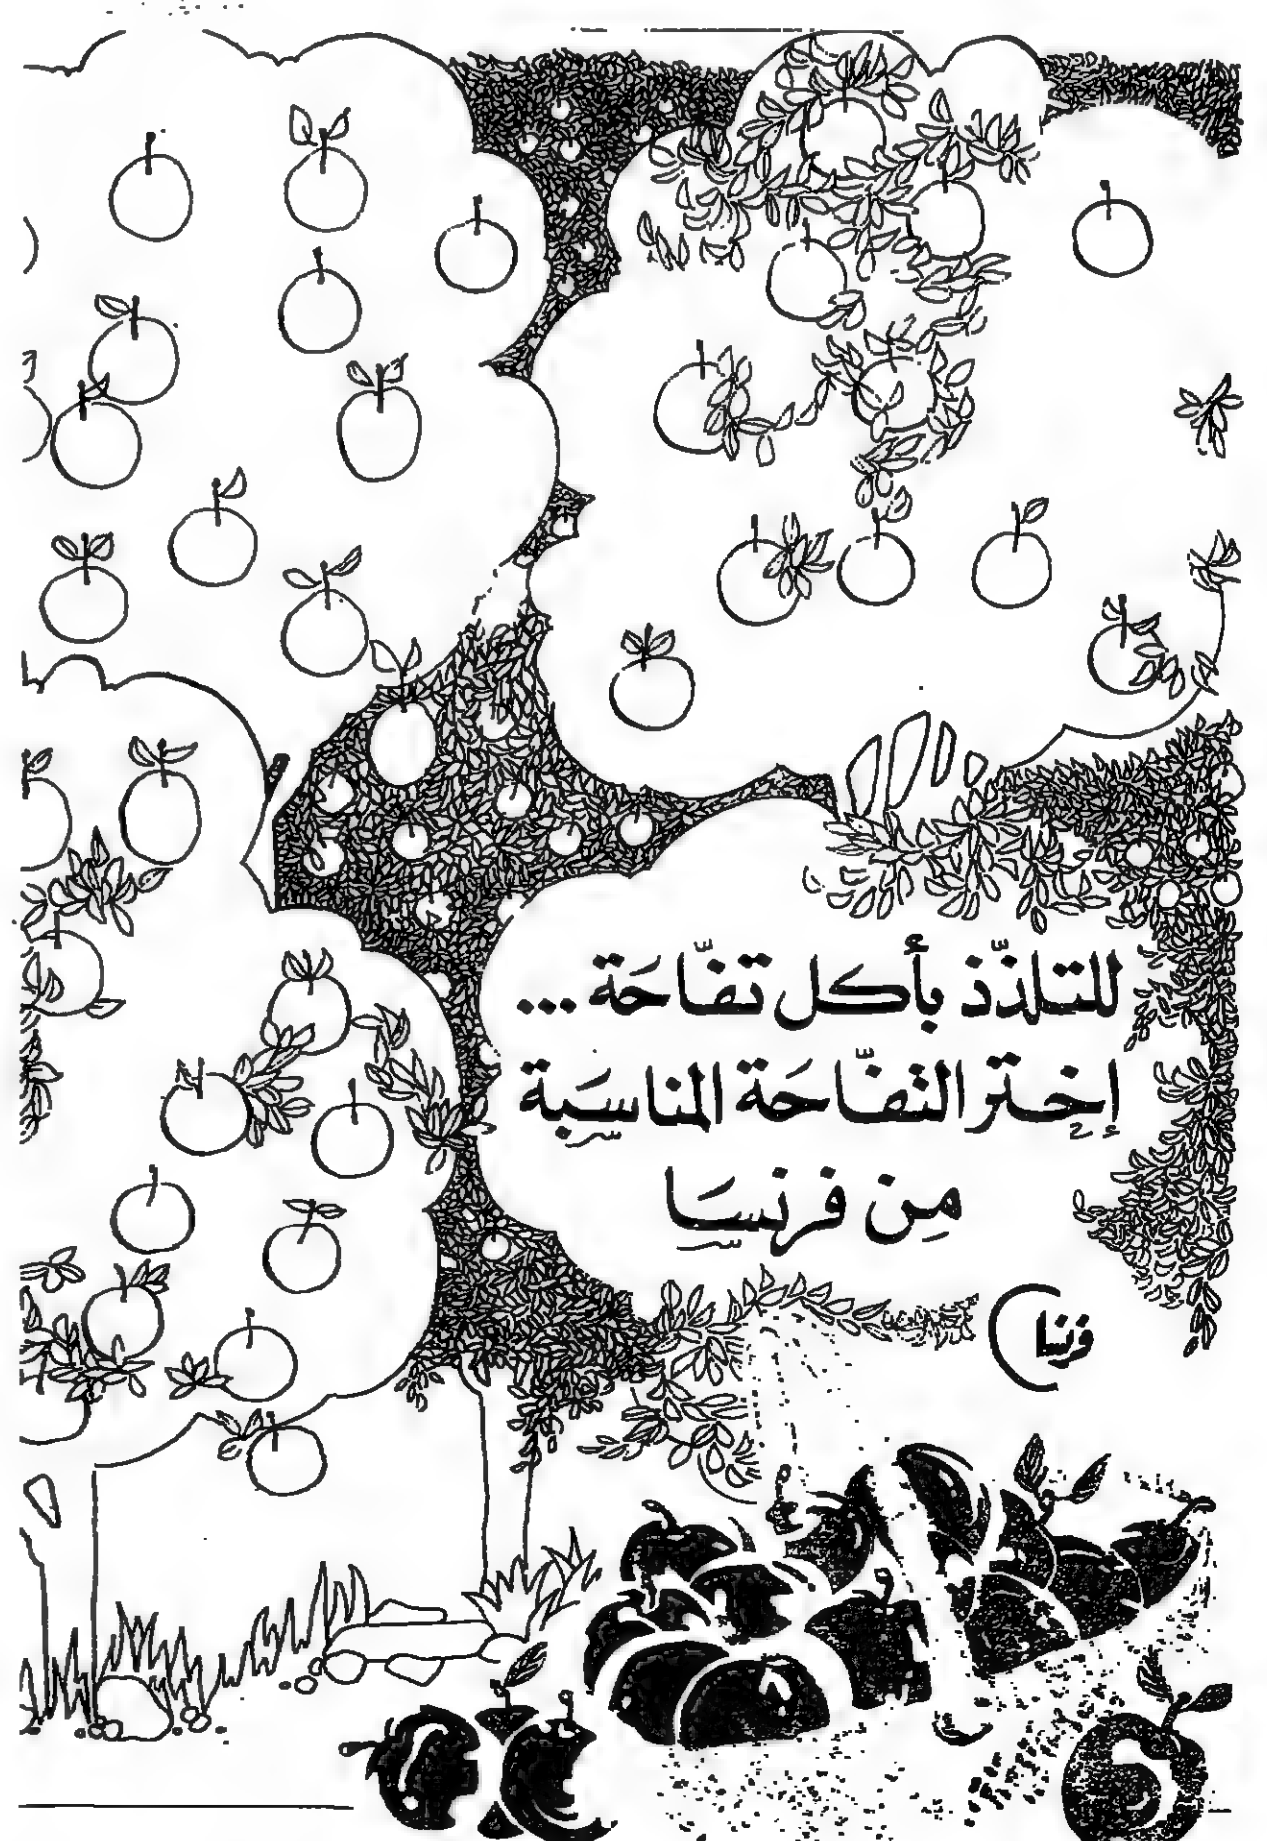 للتلذّذ بأكل تفّاحَة...
إختر التفّاحَة المناسَبة
مِن فرنسَا
فرنسا